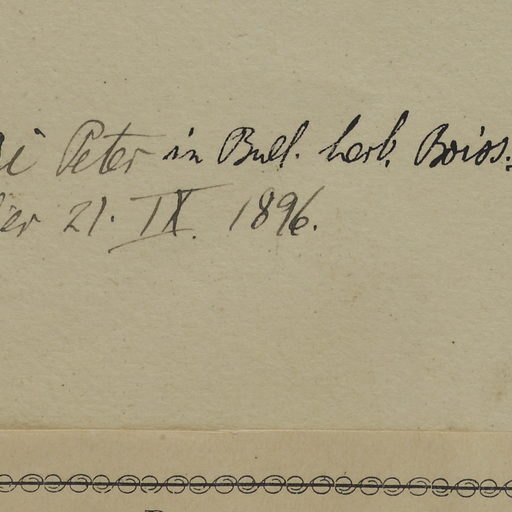 i Peter in Bull. herb. Boiss.
ier 21. IX. 1896.